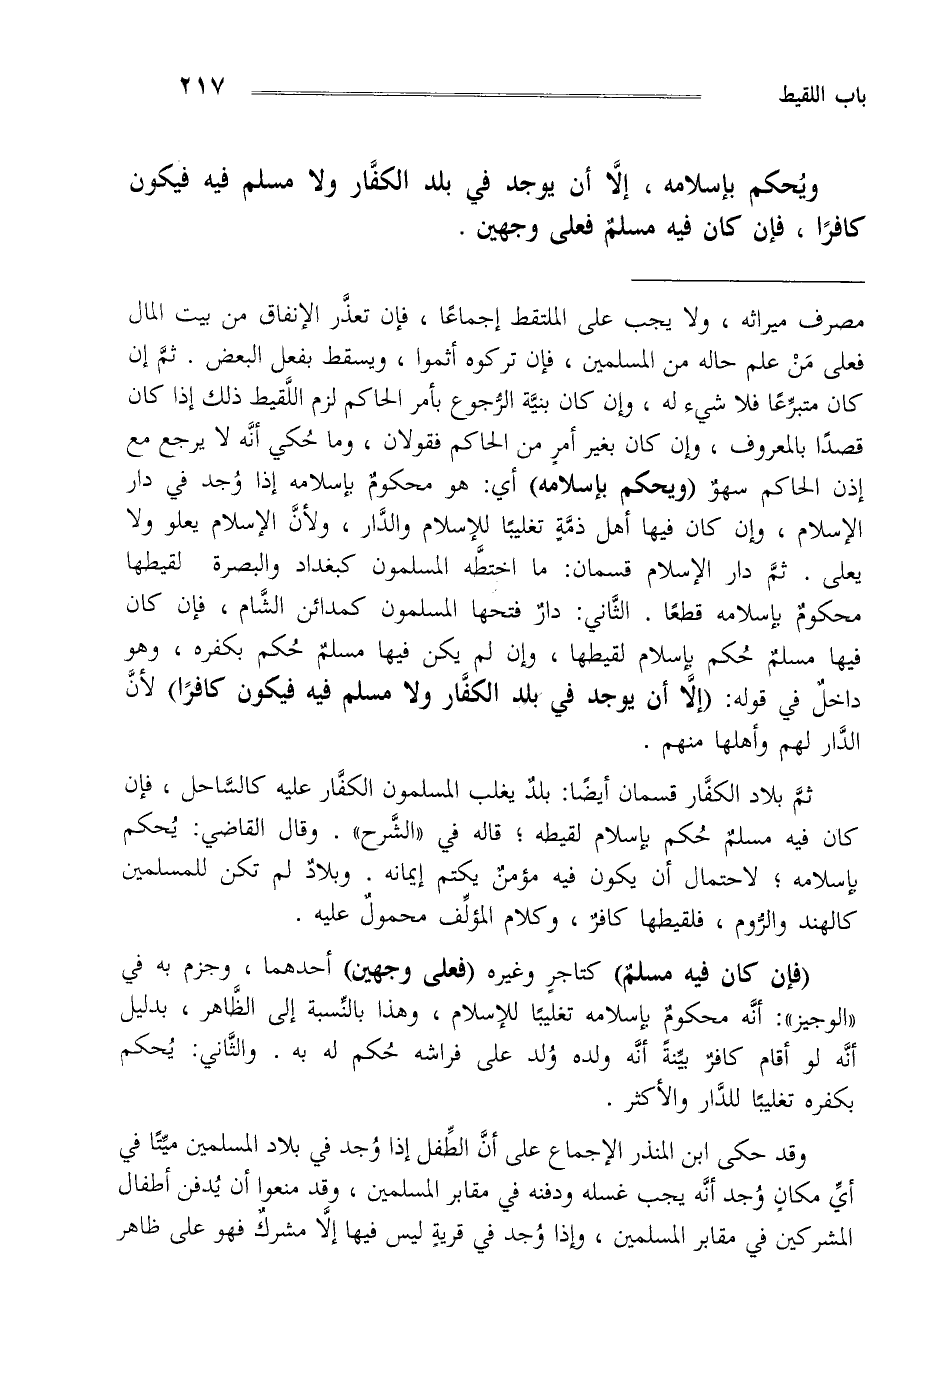 باب اللقيط ٢١٧
ويُحكم بإسلامه ، إلَّا أن يوجد في بلد الكفَّار ولا مسلم فيه فيكون
كافرًا ، فإن كان فيه مسلمٌ فعلى وجهين .
مصرف ميراثه ، ولا يجب على الملتقط إجماعًا ، فإن تعذَّر الإنفاق من بيت المال
فعلى مَنْ علم حاله من المسلمين ، فإن تركوه أثموا ، ويسقط بفعل البعض . ثمَّ إن
كان متبرِّعًا فلا شيء له ، وإن كان بنيَّة الرُّجوع بأمر الحاكم لزم اللَّقيط ذلك إذا كان
قصدًا بالمعروف ، وإن كان بغير أمرٍ من الحاكم فقولان ، وما حُكي أنَّه لا يرجع مع
إذن الحاكم سهوٌ (ويحكم بإسلامه) أي: هو محكومٌ بإسلامه إذا وُجد في دار
الإسلام ، وإن كان فيها أهل ذمَّةٍ تغليبًا للإسلام والدَّار ، ولأنَّ الإسلام يعلو ولا
يعلى . ثمَّ دار الإسلام قسمان: ما اختطَّه المسلمون كبغداد والبصرة لقيطها
محكومٌ بإسلامه قطعًا . الثَّاني: دارٌ فتحها المسلمون كمدائن الشَّام ، فإن كان
فيها مسلمٌ حُكم بإسلام لقيطها ، وإن لم يكن فيها مسلمٌ حُكم بكفره ، وهو
داخلٌ في قوله: (إلَّا أن يوجد في بلد الكفَّار ولا مسلم فيه فيكون كافرًا) لأنَّ
الدَّار لهم وأهلها منهم .
ثمَّ بلاد الكفَّار قسمان أيضًا: بلدٌ يغلب المسلمون الكفَّار عليه كالسَّاحل ، فإن
كان فيه مسلمٌ حُكم بإسلام لقيطه ؛ قاله في «الشَّرح» . وقال القاضي: يُحكم
بإسلامه ؛ لاحتمال أن يكون فيه مؤمنٌ يكتم إيمانه . وبلادٌ لم تكن للمسلمين
كالهند والرُّوم ، فلقيطها كافرٌ ، وكلام المؤلِّف محمولٌ عليه .
(فإن كان فيه مسلمٌ) كتاجرٍ وغيره (فعلى وجهين) أحدهما ، وجزم به في
«الوجيز»: أنَّه محكومٌ بإسلامه تغليبًا للإسلام ، وهذا بالنِّسبة إلى الظَّاهر ، بدليل
أنَّه لو أقام كافرٌ بيِّنةً أنَّه ولده وُلد على فراشه حُكم له به . والثَّاني: يُحكم
بكفره تغليبًا للدَّار والأكثر .
وقد حكى ابن المنذر الإجماع على أنَّ الطِّفل إذا وُجد في بلاد المسلمين ميِّتًا في
أيِّ مكانٍ وُجد أنَّه يجب غسله ودفنه في مقابر المسلمين ، وقد منعوا أن يُدفن أطفال
المشركين في مقابر المسلمين ، وإذا وُجد في قريةٍ ليس فيها إلَّا مشركٌ فهو على ظاهر